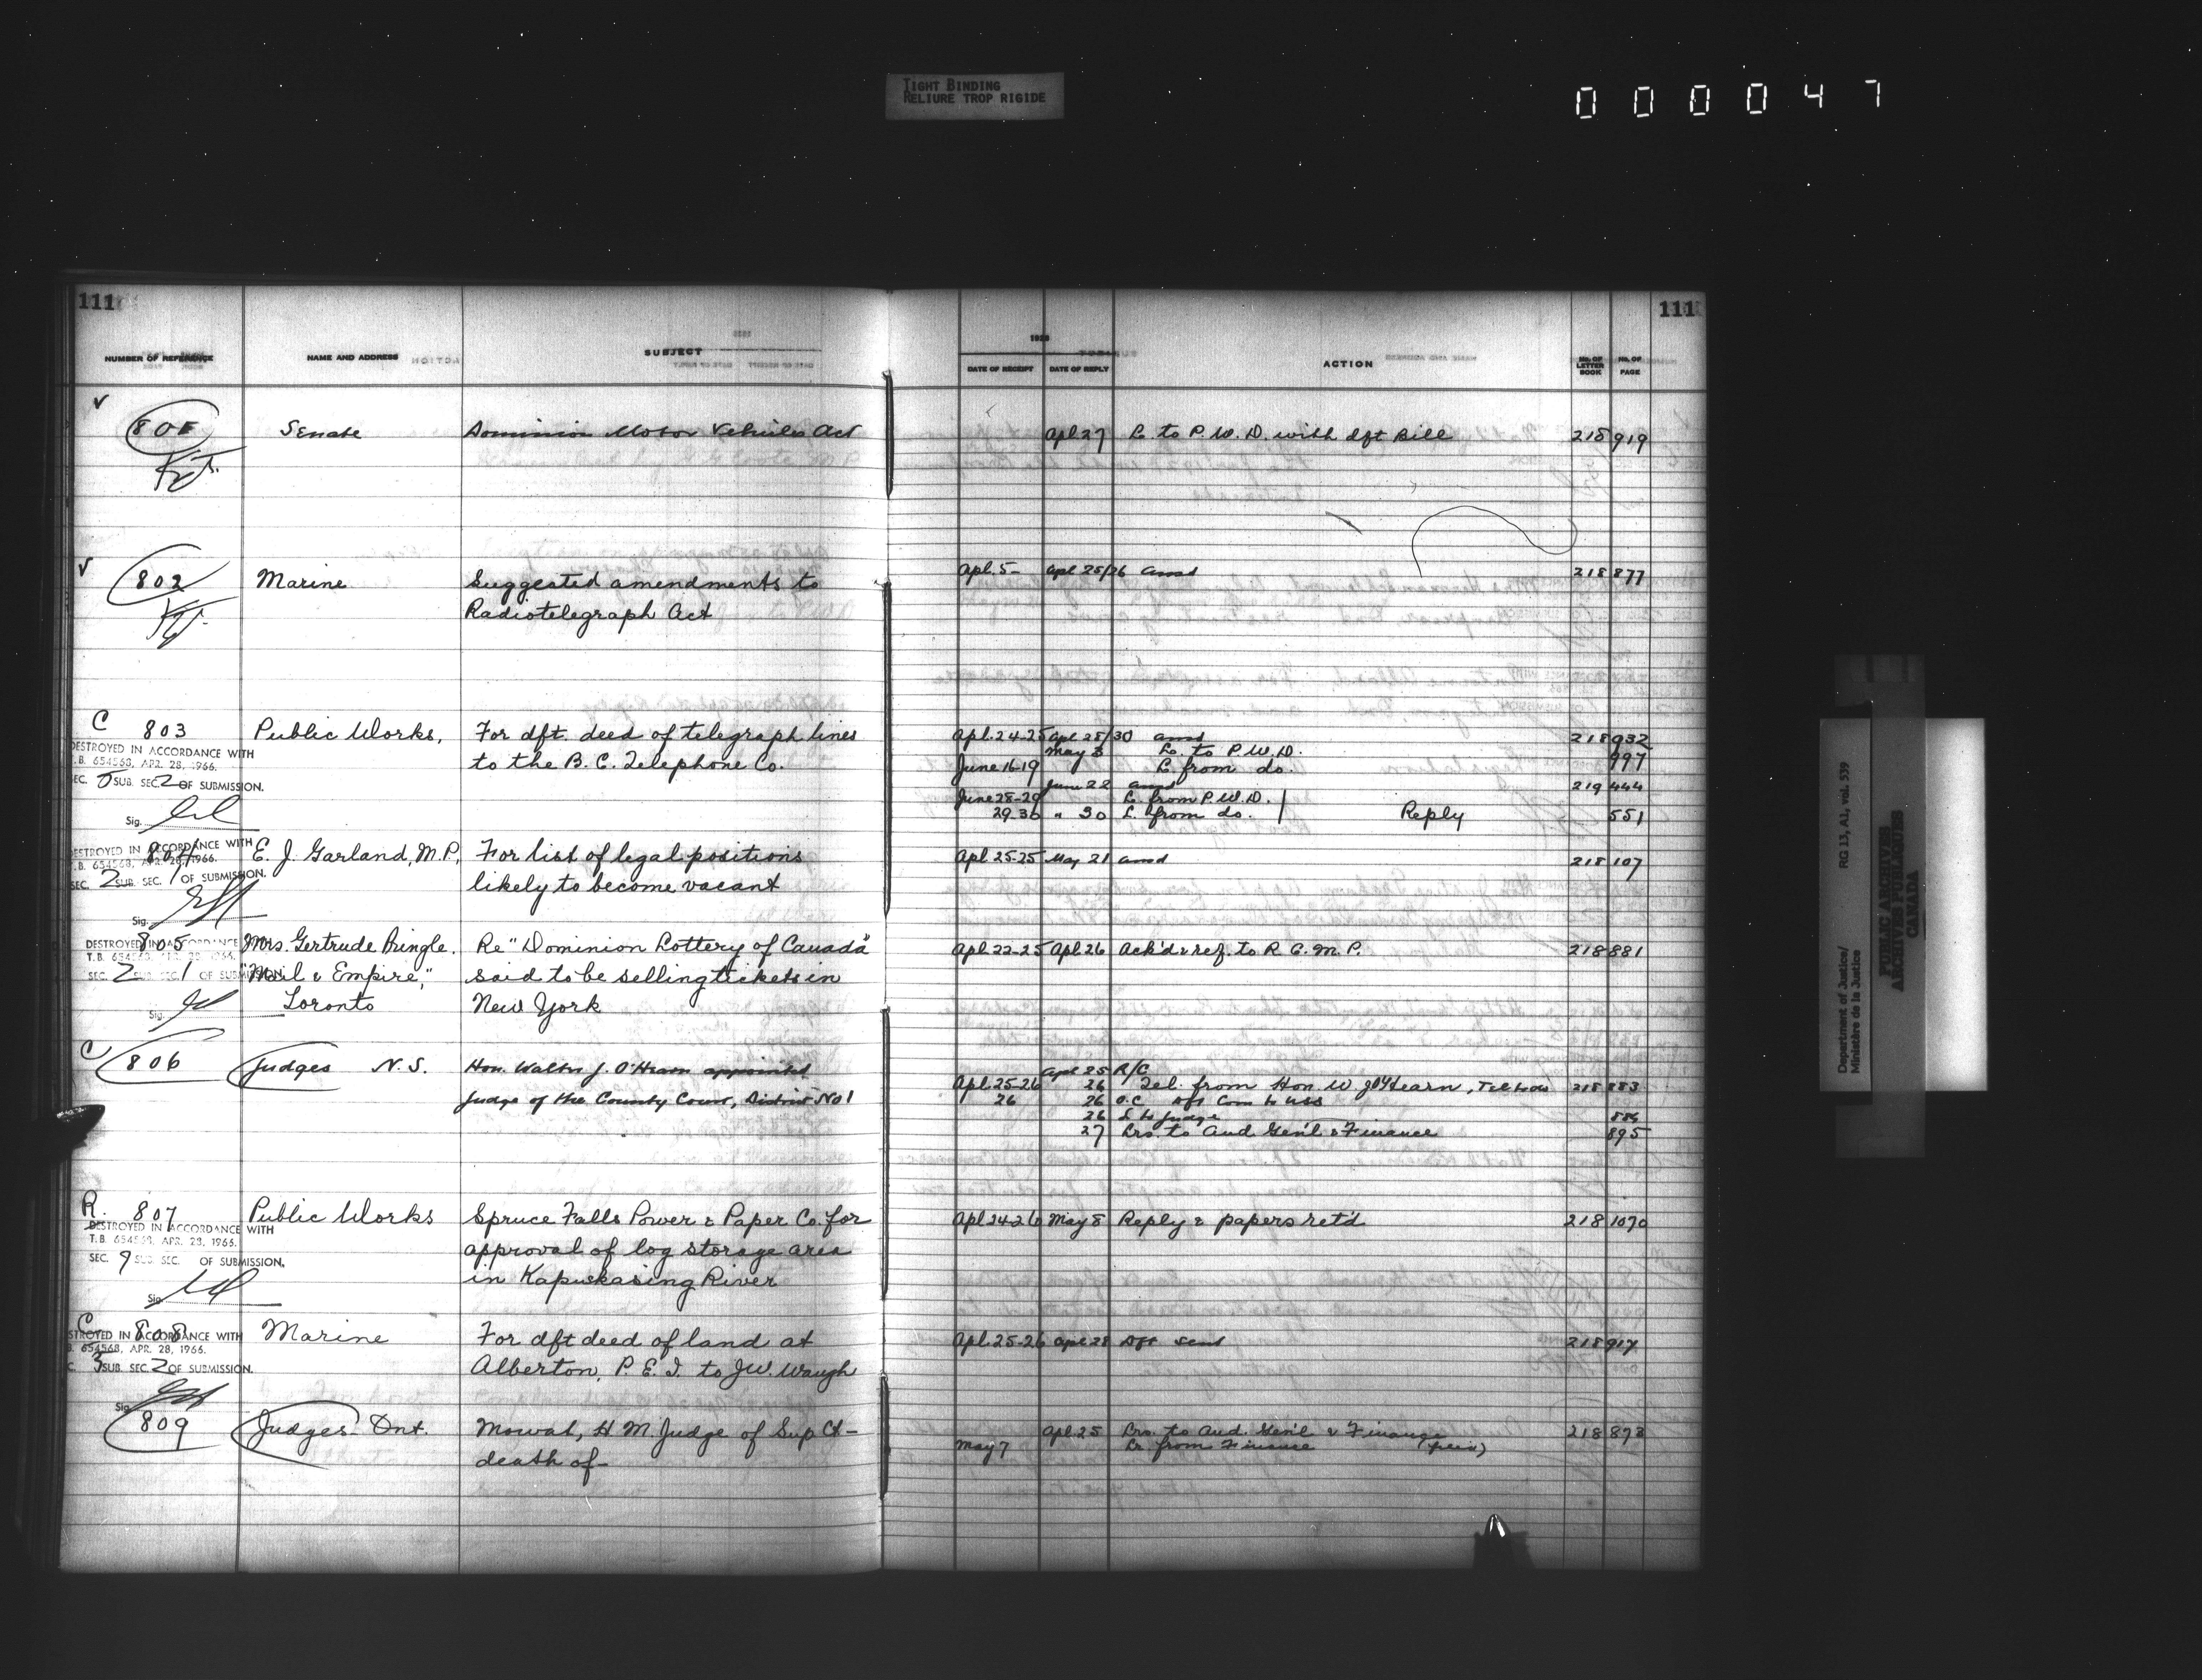 TIGHT BINDING
RELIURE TROP RIGIDE
0 0 0 0 4 7
111
111
NUMBER OF REFERENCE NAME AND ADDRESS SUBJECT
1928
DATE OF RECEIPT DATE OF REPLY ACTION No. OF LETTER BOOK No. OF PAGE
801 Senate Dominion Motor Vehicles Act Apl 27 L to P.W.D. with dft Bill 218 919
802 Marine Suggested amendments to Apl. 5- Apl 25/26 ansd 218 877
Radiotelegraph Act
C 803 Public Works, For dft. deed of telegraph lines Apl. 24-25 Apl 28/30 ansd 218 932
DESTROYED IN ACCORDANCE WITH
T.B. 654568, APR. 28, 1966.
to the B.C. Telephone Co. May 3 L. to P.W.D. 997
June 16-19 L. from do.
SEC. 5 SUB. SEC. 2 OF SUBMISSION.
June 22 ansd 219 444
June 28-29 L. from P.W.D.
29-30 " 30 L. from do. Reply 551
Sig.
804 E. J. Garland, M.P. For list of legal positions Apl 25-25 May 21 ansd 218 107
DESTROYED IN ACCORDANCE WITH
T.B. 654568, APR. 28, 1966.
SEC. 2 SUB. SEC. 1 OF SUBMISSION.
likely to become vacant
Sig.
805 Mrs. Gertrude Pringle. Re "Dominion Lottery of Canada" Apl. 22-25 Apl 26 Ack'd & ref. to R.C.M.P. 218 881
DESTROYED IN ACCORDANCE
T.B. 654568, APR. 28, 1966.
SEC. 2 SUB. SEC. 1 OF SUBMISSION
"Mail & Empire," said to be selling tickets in
Sig. Toronto New York
C 806 Judges N.S. Hon. Walter J. O'Hearn appointed Apl 25 R/C
Apl. 25-26 26 Tel. from Hon. W J O'Hearn, Tel to do 218 883
Judge of the County Court, District No 1 26 26 O.C. Dft Com to USS
26 L to Judge 886
27 Lrs. to Aud Gen'l & Finance 895
R. 807 Public Works Spruce Falls Power & Paper Co. for Apl 24-26 May 8 Reply & papers ret'd 218 1070
DESTROYED IN ACCORDANCE WITH
T.B. 654568, APR. 28, 1966.
approval of log storage area
SEC. 9 SUB. SEC. OF SUBMISSION.
in Kapuskasing River
Sig.
C 808 Marine For dft deed of land at Apl. 25-26 Apl 28 Dft sent 218 917
DESTROYED IN ACCORDANCE WITH
B. 654568, APR. 28, 1966.
Alberton, P.E.I. to J.W. Waugh
3 SUB. SEC. 2 OF SUBMISSION.
Sig.
809 Judges - Ont. Mowat, H M. Judge of Sup Ct - Apl. 25 Lrs. to Aud. Gen'l & Finance 218 873
May 7 Lr. from Finance
death of -
Department of Justice/ RG 13, A1, vol. 539
Ministère de la Justice
PUBLIC ARCHIVES
ARCHIVES PUBLIQUES
CANADA